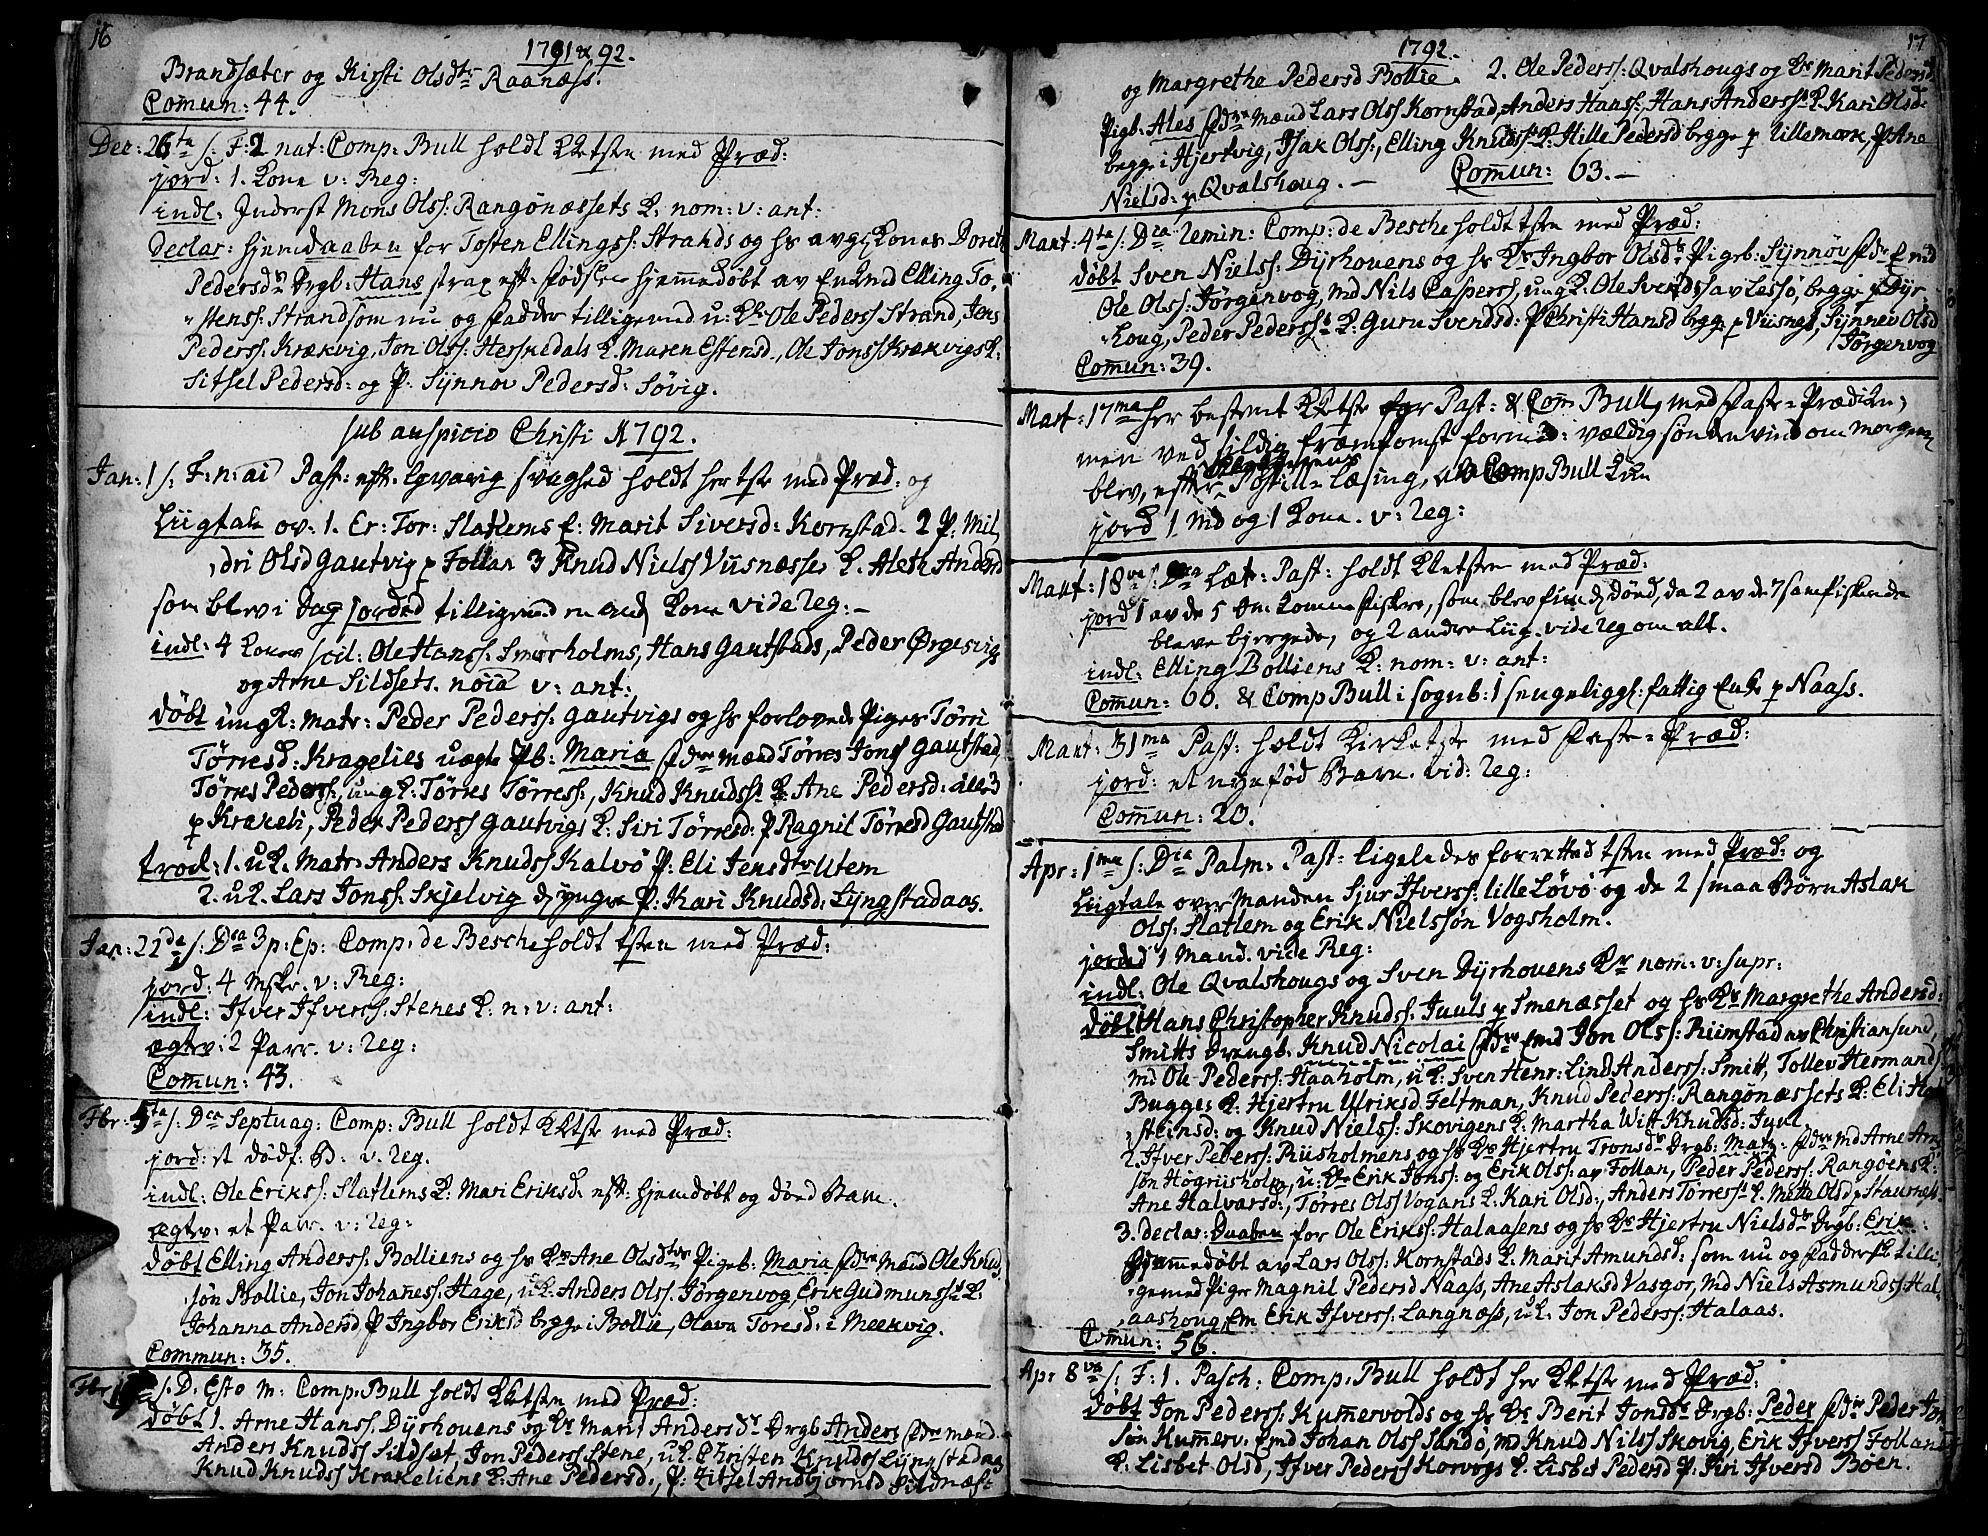 16
1791 & 92.
Brandsæter og Kirsti Olsdtr Raanæss.
Comun: 44.
Dec: 26ta /: F: 2 nat: Comp: Bull holdt med Præd:
jord: 1. Kone v: Reg:
indl: Inderst Mons Olss: Rangønæssets K: nom: v: ant:
declar: hjemdaaben for Tosten Ellingss: Strands og hs Kones Doreth
Pedersdr Drgb: Hans strax eft: fødslen hjemmedøbt av Elling To,
stenss: Strand som nu og fadder tilligemed u: K: Ole Pederss Strand, Jens
Pederss: Krækvig, Jon Olss: Herskedals K: Maren Estensd., Ole Jonss Krækvigs K:
Sitsel Pedersd: og P: Synnov Pedersd: Søvig.
sub auspicio Christi 1792.
Jan: 1 /: F: n: ai Past: eft: svaghed holdt her med Præd: og
Liigtale ov: 1. Er: Tor: Slatlems E: Marit Siversd: Kornstad. 2 P: Mil,
dri Olsd Gautvig p Follan 3 Knud Nielss Viisnæsses K. Aleth Andersd
som blev i dag jorded tilligemed Kone vide Reg: -
indl: 4 Koner scil: Ole Hanss: Smørholms, Hans Gautstads, Peder Ørgesvigs
og Arne Sildsets. noia v: ant:
døbt ungk: matr: Peder Pederss: Gautvigs og hs forlovede Piges Törri
Tørresd: Kragelies uægte Pb: Maria fdre mænd Tørres Jonss Gautstad,
Tørres Pederss, ungk: Tørres Tørress:, Knud Knudss: K: Ane Pedersd: alle 3
p Krakeli, Peder Pederss Gautvigs K: Siri Törresd: P Ragnil Törresd Gautstad
trol: 1. u K. Matr: Anders Knudss Kalvø P: Eli Jensdtr Utem
2. u K. Lars Jonss: Skjelvig d yngre P: Kari Knudsd: Lyngstadaas.
Jan: 22de /: Dca 3 p: Ep: Comp: de Besche holdt tsten med Præd:
jord: 4 v: Reg:
indl: Ifver Ifverss: Stenes K: n: v: ant:
ægtv: 2 Parr. v: Reg:
Comun: 43.
Fbr: 5ta /: Dca Septuag: Comp: Bull holdt med Præd:
jord: et dödf: B. v. Reg.
indl: Ole Erikss: Slatlems K: Mari Eriksd: eft: hjemdøbt og død Barn.
ægtv: et Parr. v: Reg:
døbt Elling Anderss: Bolliens og hs Ks Ane Olsdtrs Pigeb: Maria fdre Mænd Ole Knud,
søn Bollie, Jon Johaness: Hage, uK: Anders Olss: Jørgenvog, Erik Gudmunss: K:
Johanna Andersd P Ingbor Eriksd begge i Bollie, Olava Toresd: i Meekvig.
Commun: 35.
Fbr /: D. Esto m: Comp: Bull holdt med Præd:
døbt 1. Arne Hanss: Dyrhouens og Ks Marit Andersdr Drgb Anders fdre mænd
Anders Knudss Sildset, Jon Pederss Stene, uK Christen Knudss Lyngstadaas
Knud Knudss Krakeliens K: Ane Pedersd:, P: Zitsel Andbjørnsd Sildnæst
17
1792.
og Margrethe Pedersd Bollie. 2. Ole Pederss: Qvalshougs og Ks Marit Pedersd
Pigb: Ales fdre Mænd Lars Olss Kornstad, Anders Hanss:, Hans Anderss: K: Kari Olsd:
begge i Hjertvig, Isak Olss:, Elling Knudss: K: Hille Pedersd begge p Lillemork, P Ane
Nielsd: p Qvalshoug. - Comun: 63. -
Mart: 4ta /: Dca Remin: Comp: de Besche holdt tsten med Præd:
døbt Sven Nielss: Dyrhouens og hs Ks Ingbor Olsdr Pigeb: Synnøv fdre
Ole Olss: Jørgenvog, md Nils Casperss, ungk: Ole Svends av Lessø, begge p Dyr,
houg, Peder Pederss: K: Guru Svendsd: P Christi Hansd begge p Viisnes, Synnev Olsd
Jørgenvog
Comun: 39.
Mart: 17ma her bestemt for Past: & Com Bull, med Faste-Prædiken,
men ved sildig fremkomst vældig sønden vind om morgen
blev, efter Postill-læsing, Comp Bull
jord 1 md og 1 Kone. v: Reg:
Mart: 18va /: Dca Læt: Past: holdt med Præd:
jord 1 av de 5 fiskere, som blev død, da 2 av de 7
bleve bjergede, og 2 andre Liig. vide Reg om alt.
indl: Elling Bolliens K: nom: v: ant:
Comun: 60. & Comp Bull i sognb: 1 sengeliggs: fattig Enke p Naass.
Mart: 31ma Past: holdt Kirketste med Faste-Præd:
jord: et nyefød Barn. vid: Reg:
Comun: 20.
Apr: 1ma /: Dca Palm: Past: ligeledes forretted tsten med Præd: og
Liigtale over Manden Sjur Ifverss: lille Løvø og de 2 smaa Børn Aslak
Olss: Slatlem og Erik Nielssøn Vogsholm.
jorded 1 Mand. vide Reg:
indl: Ole Qvalshougs og Sven Dyrhouens Kr nom: v: supr:
døbt Hans Christopher Knudss: Juuls p Smenæsset og hs Ks Margrethe Andersd:
Smitts Drengb. Knud Nicolai fdre Jon Olss: Rümstad av Christiansund,
md Ole Pederss: Haaholm, uK: Sven Henr: Lind Anderss: Smitt, Tollev Hermands
Bugges K: Hjertru Ulriksd Feltman, Knud Pederss: Rangønæssets K: Eli
steinsd: og Knud Nielss: Skovigens K: Martha Witt Knudsd: Juul
2. Ifver Pederss: Riisholmens og hs Ks Hjertru Tronsdr Drgb: Matz. fdre Md Arne Arn
søn Høgriisholm, u: K: Erik Jonss: og Erik Olss: av Follan, Peder Pederss: Rangøens K:
Ane Halvarsd:, Tørres Olss Vogans K: Kari Olsd:, Anders Tørress: K: Mette Olsd p Staurnes.
3. declar: Daaben for Ole Erikss: Halaasens og hs Ks Hjertru Nielsdr Drgb: Erik
hjemmedøbt av Lars Olss: Kornstads K: Marit Amundsd: som nu og fadder tilli,
gemed Pige Magnil Pedersd Naass, Ane Aslaksd Vasgor, md Niels Asmundss: Hal,
aashoug, Em Erik Ifverss: Langnæss, uK Jon Pederss: Halaas.
Comun: 56.
Apr 8va /: F: 1. Pasch: Comp: Bull holdt her med Præd:
døbt Jon Pederss: Kumervolds og hs Ks Berit Jonsdr Drgb: Peder fdre Peder Jon
søn Kummerv. Johan Olss Sandø, md Knud Nilss Skovig, Erik Ifverss Follane
K: Lisbet Olsd, Ifver Pederss Korvogs K: Lisbet Pedersd P: Siri Ifversd Bøen.